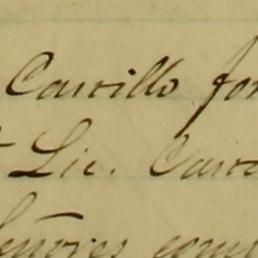 Carrillo for
Lic. Carr
señores com